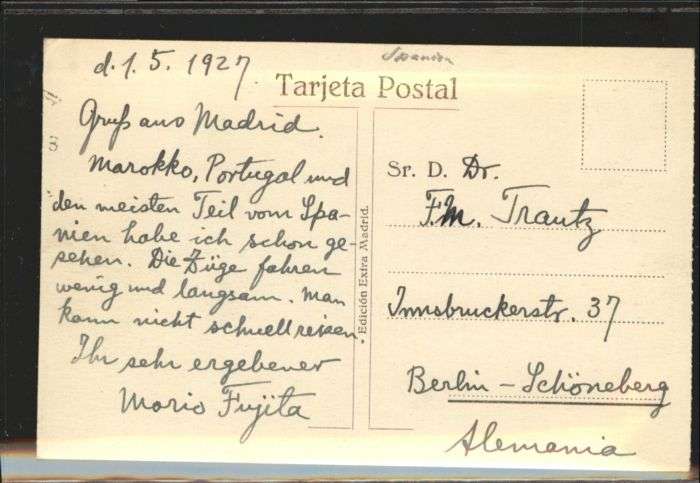 d. 1. 5. 1927.
Spanien
Tarjeta Postal
Gruß aus Madrid.
Marokko, Portugal und
den meisten Teil vom Spa-
nien habe ich schon ge-
sehen. Die Züge fahren
wenig und langsam. Man
kann nicht schnell reisen
Ihr sehr ergebener
Morio Fujita
Edición Extra Madrid.
Sr. D. Dr.
F. M. Trautz
Innsbruckerstr. 37
Berlin – Schöneberg
Alemania